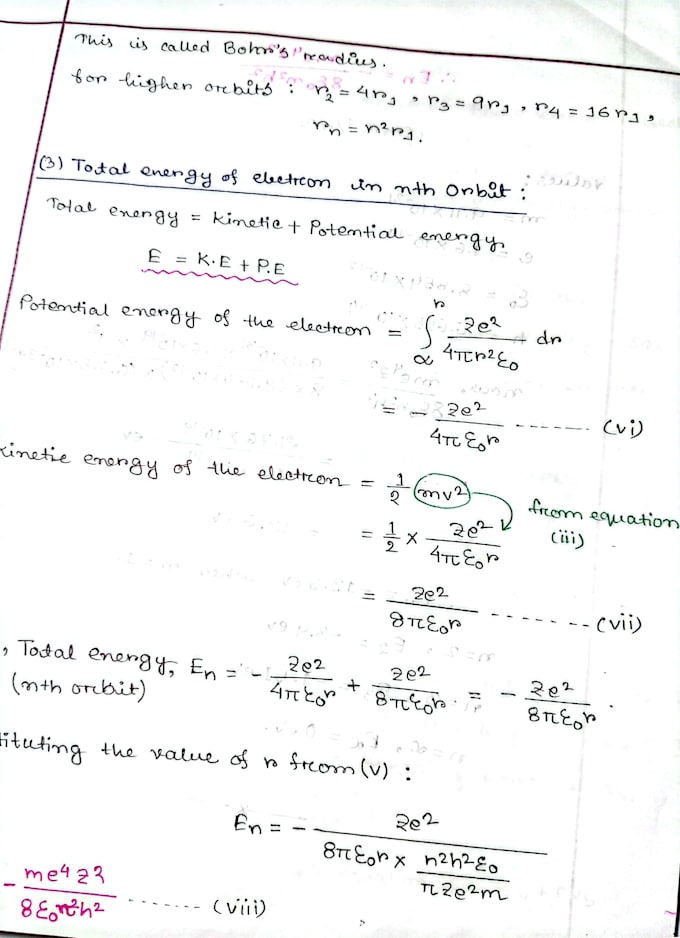 This is called Bohr's radius.
for higher orbits : r₂ = 4r₁ , r₃ = 9r₁ , r₄ = 16r₁ ,
rₙ = n²r₁.
(3) Total energy of electron in nth Orbit :
Total energy = Kinetic + Potential energy
E = K.E + P.E
Potential energy of the electron = ∫_α^r Ze²/4πr²ε₀ dr
= - Ze²/4πε₀r ------- (vi)
kinetic energy of the electron = 1/2 mv²
from equation (iii)
= 1/2 × Ze²/4πε₀r
= Ze²/8πε₀r -------- (vii)
, Total energy, Eₙ = - Ze²/4πε₀r + Ze²/8πε₀r = - Ze²/8πε₀r .
(nth orbit)
tituting the value of r from (v) :
Eₙ = - Ze²/8πε₀r × n²h²ε₀/πZe²m
- me⁴z²/8ε₀n²h² -------- (viii)